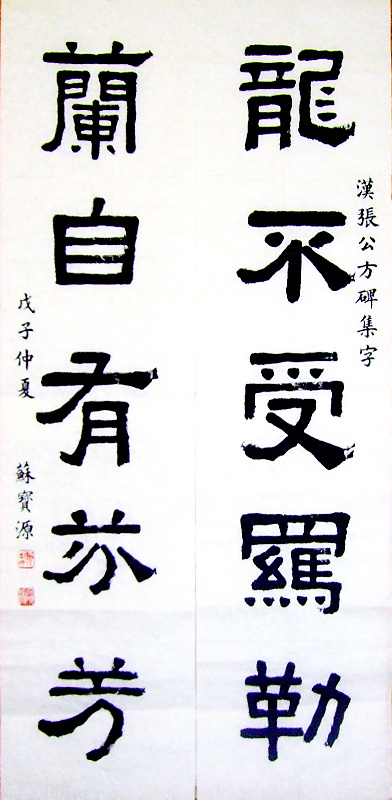 漢張公方碑集字
龍不受羈勒
蘭自有芬芳
戊子仲夏 蘇寶源